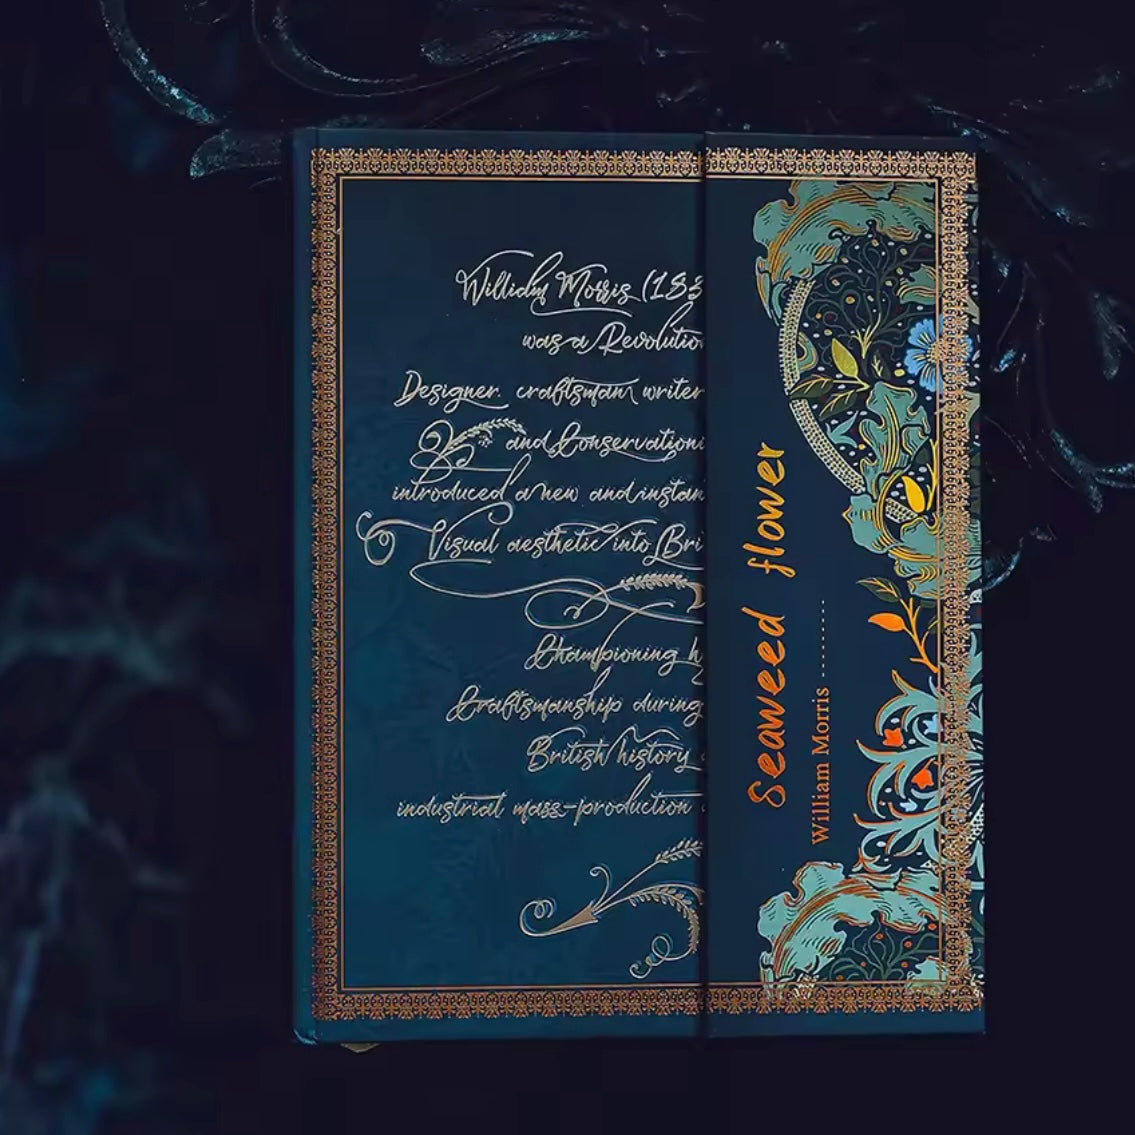 William Morris (183
was a Revolutio
Designer. craftsman writer
and Conservationi
introduced a new and instan
Visual aesthetic into Bri
Championing h
Craftsmanship during
British history
industrial mass-production
Seaweed flower
William Morris ----------